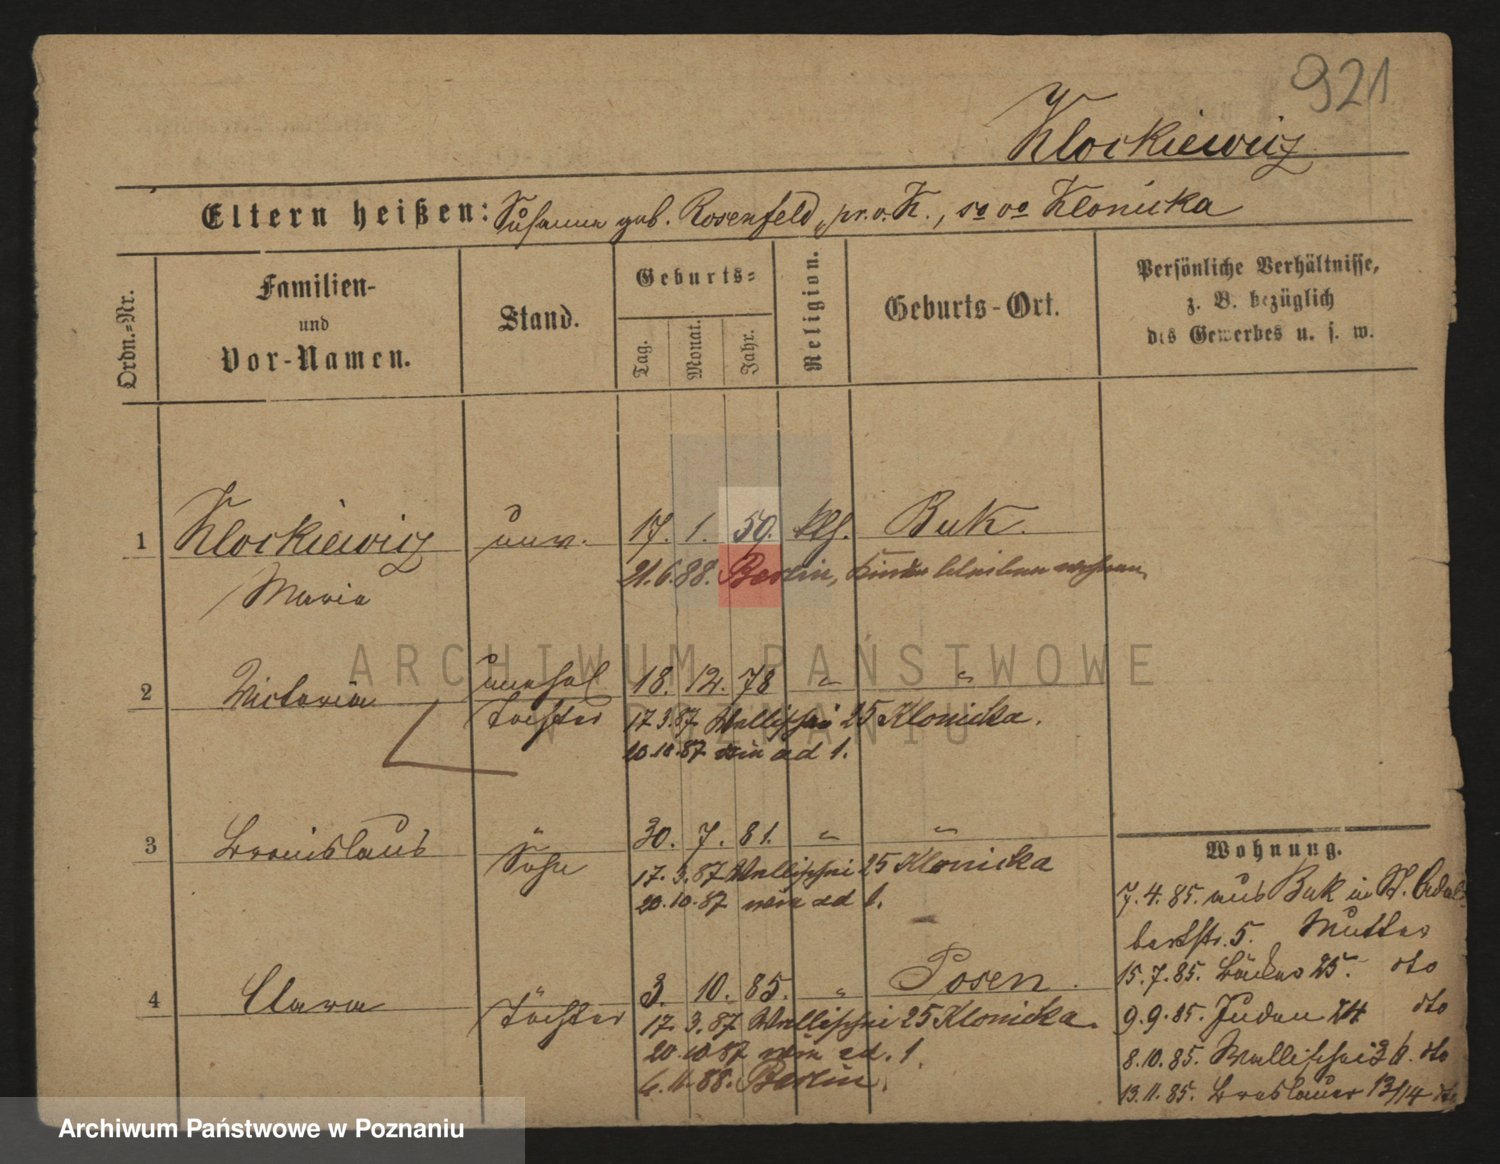 921
Klockiewicz
Eltern heißen: Susanna geb. Rosenfeld, pr. v. K., so vo Klonicka
Ordn.-Nr.
Familien-
und
Vor-Namen.
Stand.
Geburts-
Tag.
Monat.
Jahr.
Religion.
Geburts-Ort.
Persönliche Verhältnisse,
z. B. bezüglich
des Gewerbes u. s. w.
1 Klockiewicz unv. 17. 1. 59. kth. Buk.
Maria 21.6.88. Berlin, Kinder bleiben wohnen
2 Victoria unehel 18. 12. 78 " "
Tochter 17 3.87 Wallischei 25 Klonicka.
20.10.87 wie ad 1.
3 Bronislaus " 30. 7. 81. " "
Sohn 17. 3.87 Wallischei 25 Klonicka
20.10.87 wie ad 1.
4 Clara Tochter 3. 10. 85. " Posen.
17. 3.87 Wallischei 25 Klonicka.
20.10.87 wie ad. 1.
88. Berlin.
Wohnung.
7.4.85. aus Buk in St. Adal-
bertstr. 5. Mutter
15.7.85. Bäcker 25. dto
9.9.85. Juden 24 dto
8.10.85. Wallischei dto
13.11.85. Breslauer 13/14 dto
ARCHIWUM PAŃSTWOWE
W POZNANIU
Archiwum Państwowe w Poznaniu